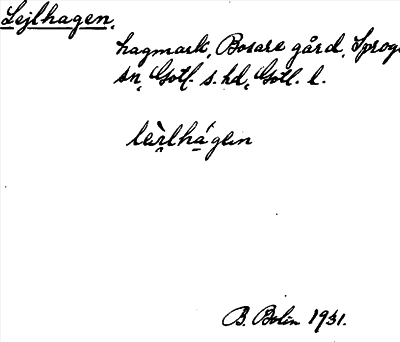 Lejlhagen,
hagmark, Bosarve gård, Sproge
sn, Gotl. s. hd, Gotl. l.
leìlhágen
B. Bolin 1931.